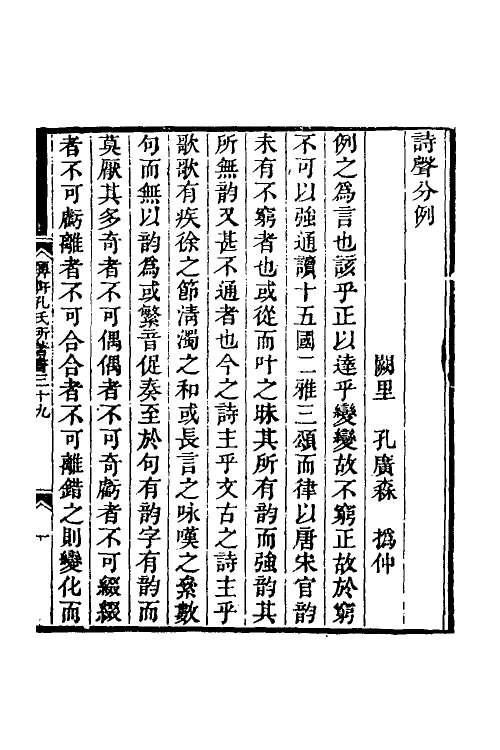 詩聲分例
闕里 孔廣森 撝仲
例之為言也該乎正以達乎變變故不窮正故於窮
不可以強通讀十五國二雅三頌而律以唐宋官韵
未有不窮者也或從而叶之昧其所有韵而強韵其
所無韵又甚不通者也今之詩主乎文古之詩主乎
歌歌有疾徐之節淸濁之和或長言之咏嘆之絫數
句而無以韵為或繁音促奏至於句有韵字有韵而
莫厭其多奇者不可偶偶者不可奇虧者不可綴綴
者不可虧離者不可合合者不可離錯之則變化而
顨軒孔氏所著書三十九